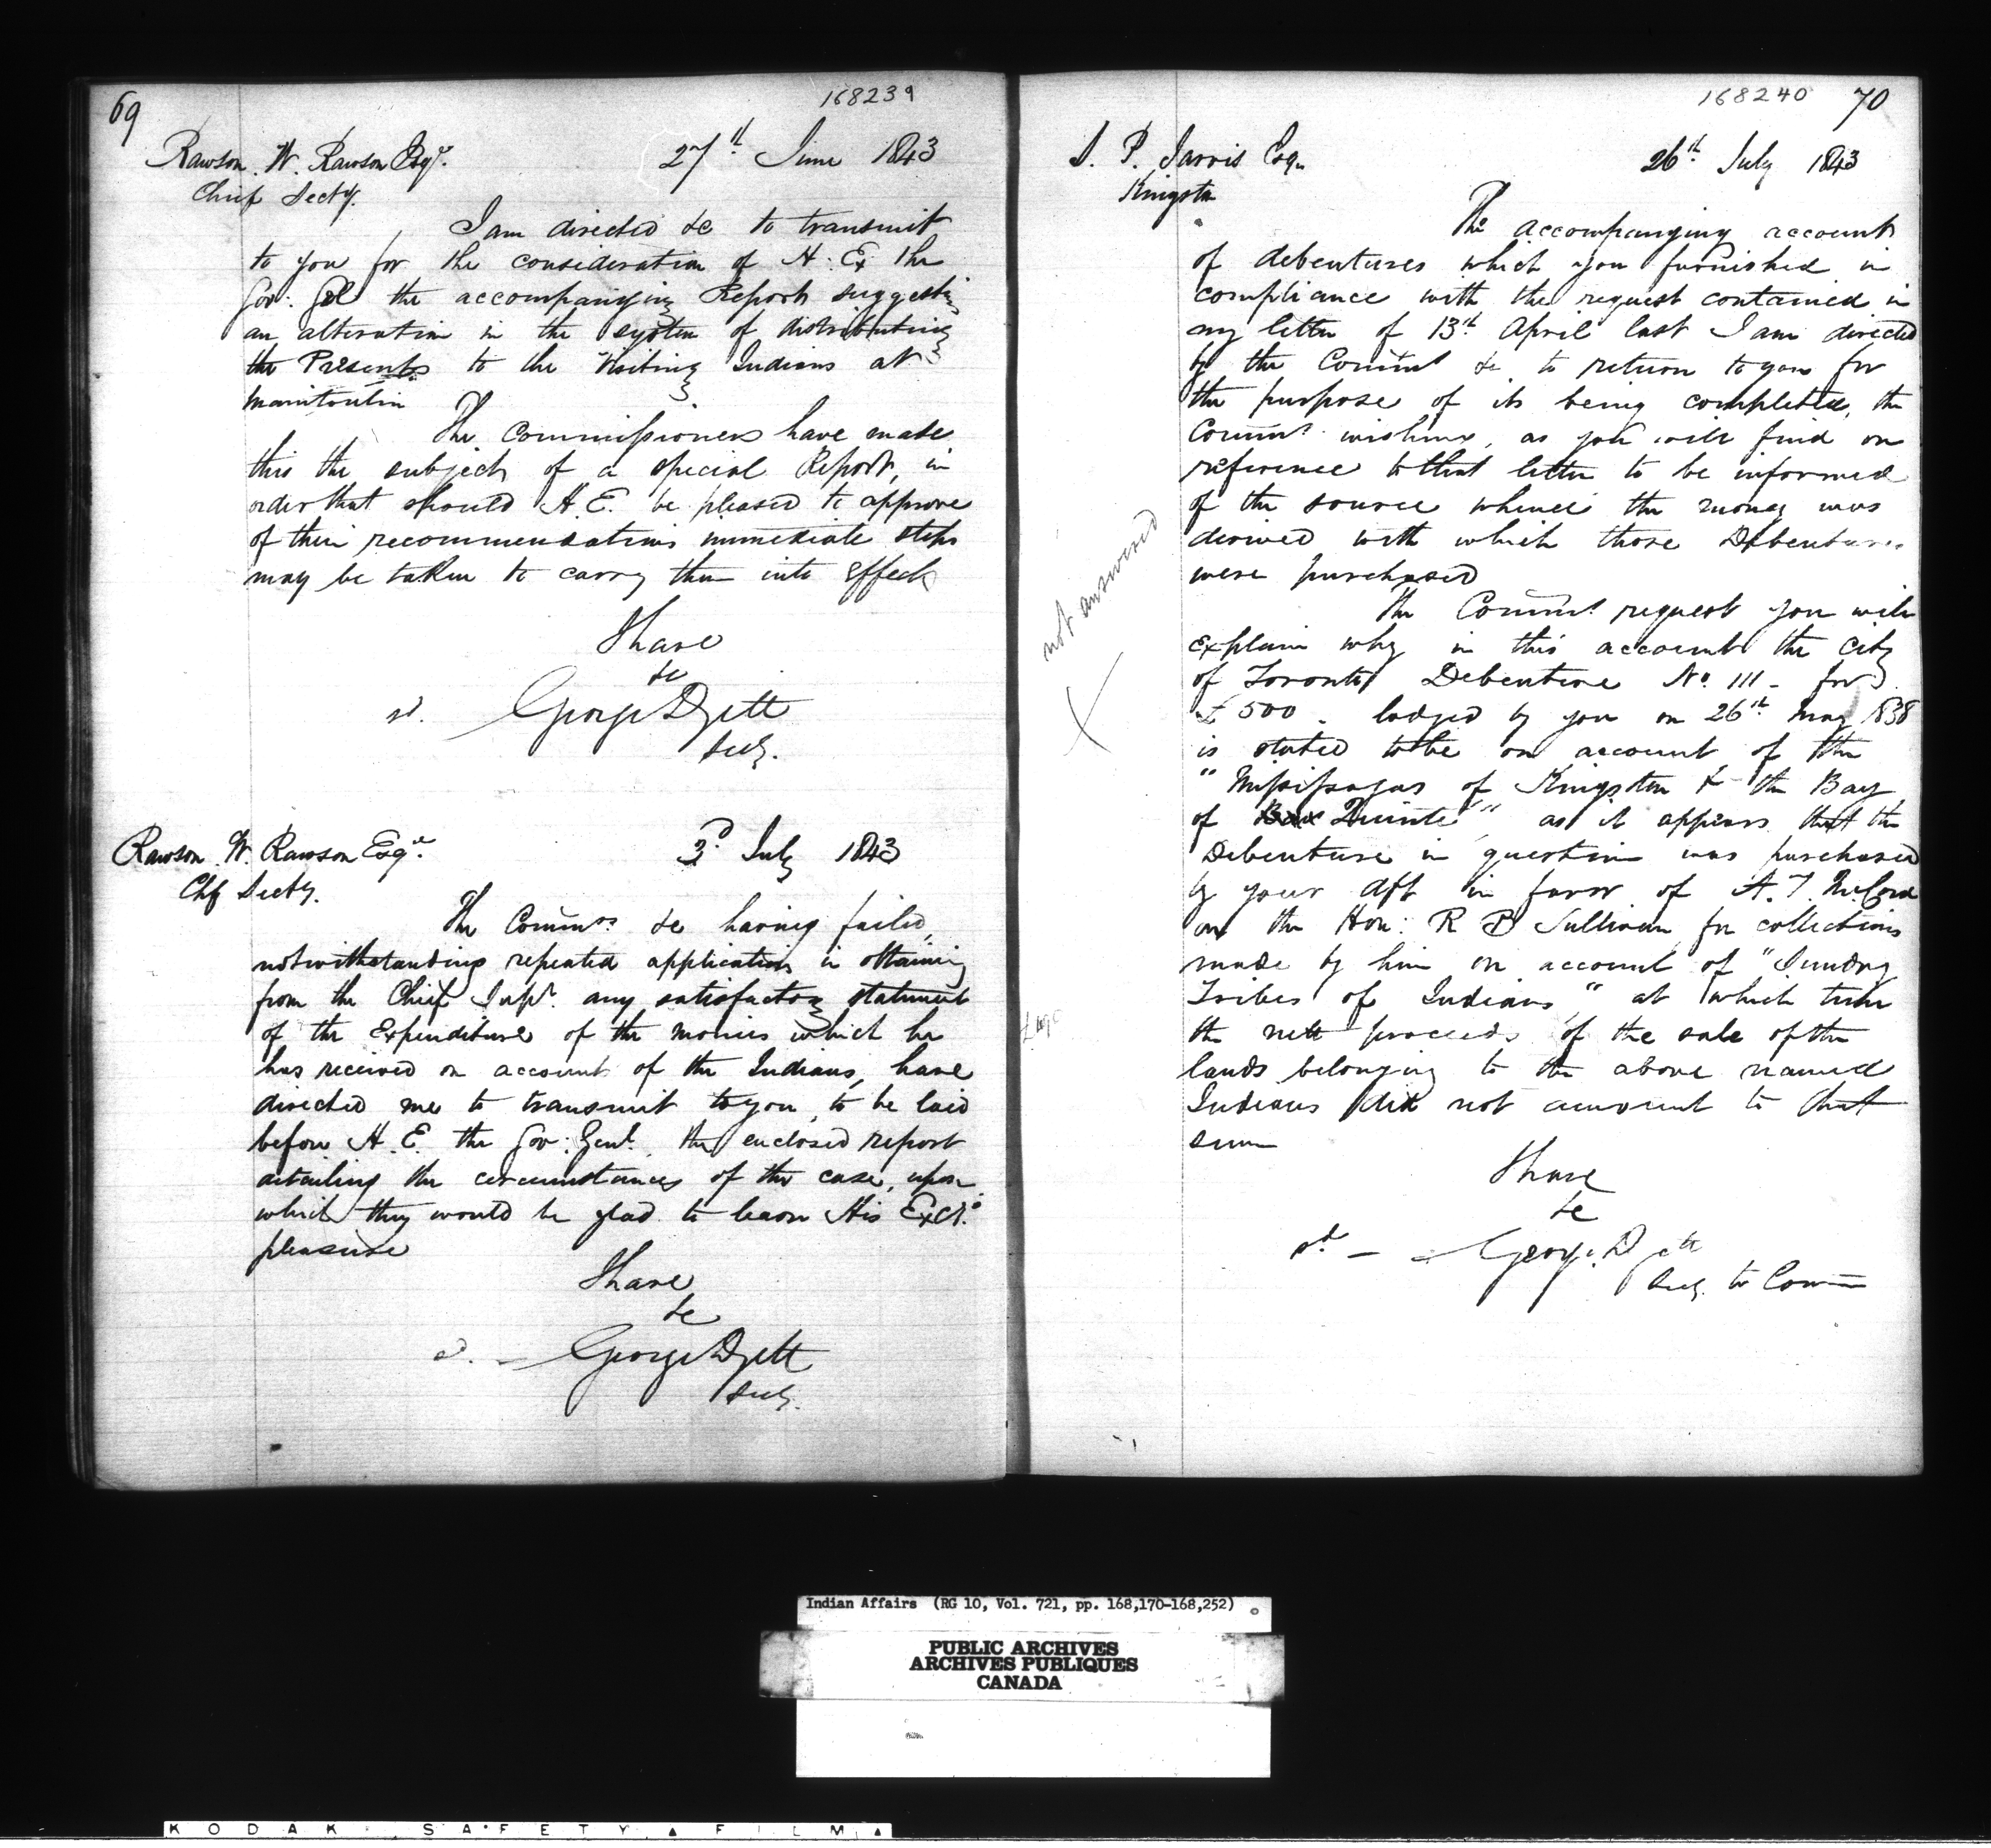 69
168239
Rawson. W. Rawson Esqr.
27th June 1843
Chief Secty.
I am directed &c to transmit
to you for the consideration of H. Ex the
Gov: Gel the accompanying Report suggesting
an alteration in the system of distributing
the Presents to the Visiting Indians at
Manitoulin
The Commissioners have made
this the subject of a special Report, in
order that should H. E. be pleased to approve
of their recommendations immediate steps
may be taken to carry them into effect
I have
&c
sd. George Dyett
Secy.
Rawson. W. Rawson Esqre.
3d July 1843
Chf Secty.
The Commrs. &c having failed,
notwithstanding repeated application in obtaining
from the Chief Supt. any satisfactory statement
of the Expenditure of the monies which he
has received on account of the Indians, have
directed me to transmit to you, to be laid
before H. E. the Gov: Genl. the enclosed report
detailing the circumstances of the case, upon
which they would be glad to learn His Excy's
pleasure
I have
&c
sd. George Dyett
Secy.
168240 70
S. P. Jarvis Esqr
26th July 1843
Kingston
The accompanying account
of debentures which you furnished in
compliance with the request contained in
my letter of 13th April last I am directed
by the Commrs &c to return to you for
the purpose of its being completed, the
Commrs. wishing, as you will find on
reference to that letter to be informed
of the source whence the money was
derived with which those Debentures
were purchased
not answered
The Commrs request you will
explain why in this account the City
of Toronto Debenture No. 111 - for
£500 - lodged by you on 26th May 1838
is stated to be on account of the
"Missisagas of Kingston & the Bay
of Bay Quinte" as it appears that the
Debenture in question was purchased
by your dft in favor of A. T. McCord
on the Hon: R B Sullivan for collections
made by him on account of "Sundry
Tribes of Indians" at which time
the nett proceeds of the sale of the
lands belonging to the above named
Indians did not amount to that
sum
I have
&c
sd - George Dyett
Secy. to Comm
Indian Affairs (RG 10, Vol. 721, pp. 168,170-168,252)
PUBLIC ARCHIVES
ARCHIVES PUBLIQUES
CANADA
KODAK SAFETY FILM